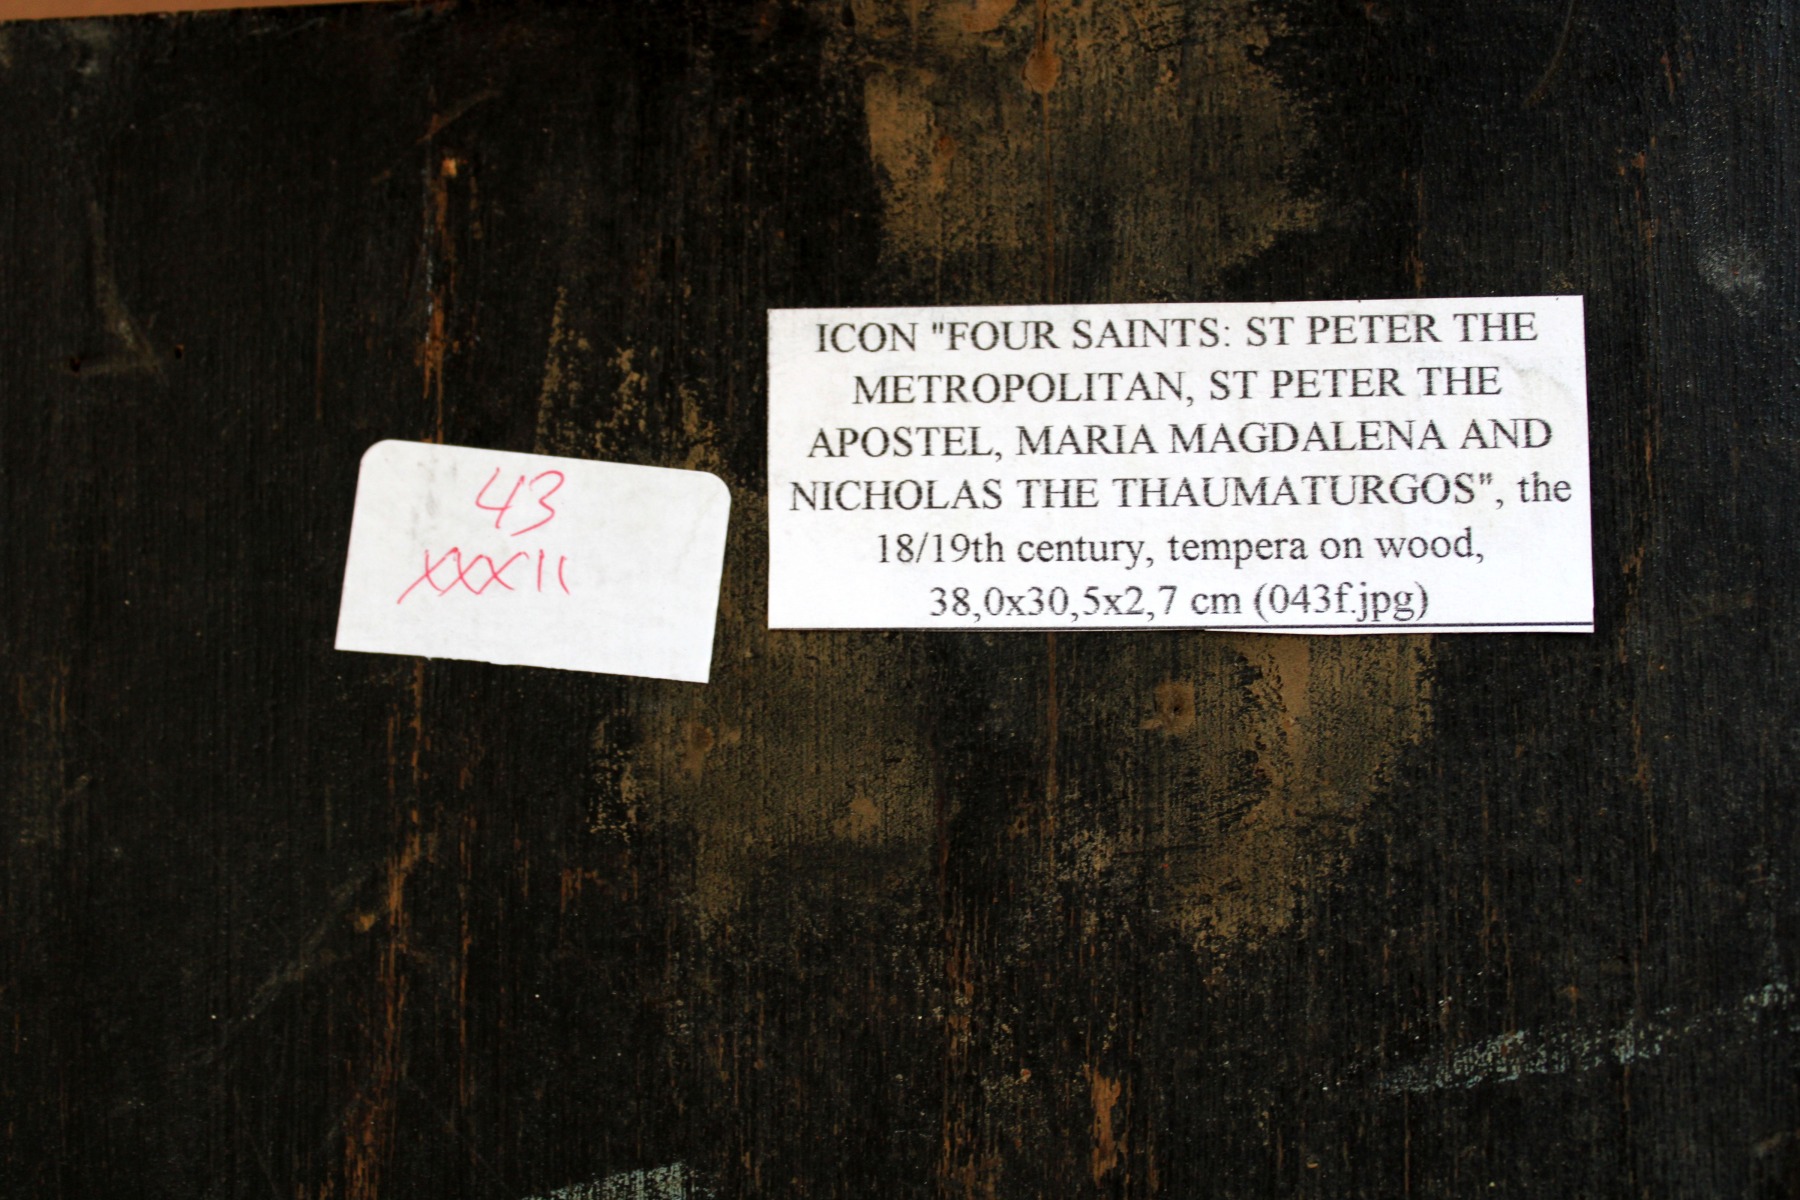 43
XXXII
ICON "FOUR SAINTS: ST PETER THE
METROPOLITAN, ST PETER THE
APOSTEL, MARIA MAGDALENA AND
NICHOLAS THE THAUMATURGOS", the
18/19th century, tempera on wood,
38,0x30,5x2,7 cm (043f.jpg)